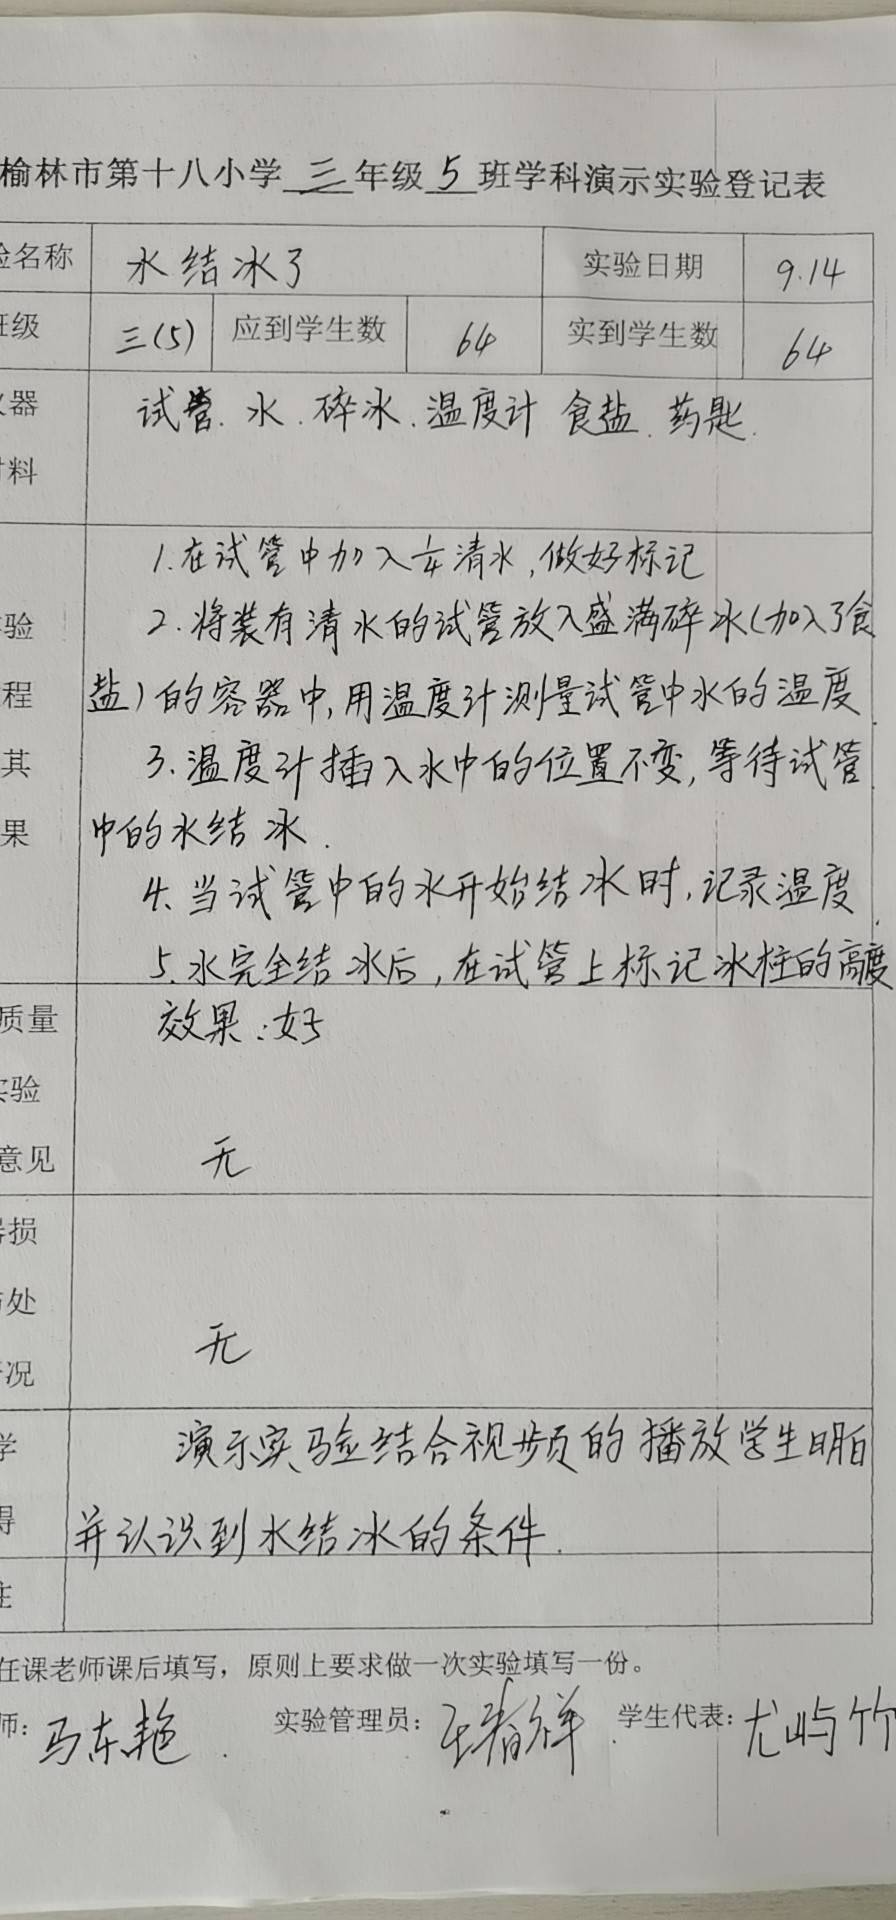 榆林市第十八小学三年级5班学科演示实验登记表
验名称 水结冰了 实验日期 9.14
班级 三(5) 应到学生数 64 实到学生数 64
仪器 试管.水.碎冰.温度计 食盐.药匙.
材料
1.在试管中加入1/4清水,做好标记
实验 2.将装有清水的试管放入盛满碎冰(加入了食
程 盐)的容器中,用温度计测量试管中水的温度
其 3.温度计插入水中的位置不变,等待试管
果 中的水结冰.
4.当试管中的水开始结冰时,记录温度
5.水完全结冰后,在试管上标记冰柱的高度
质量 效果:好
实验
意见 无
损
处
无
况
学 演示实验结合视频的播放学生明白
得 并认识到水结冰的条件.
注
任课老师课后填写，原则上要求做一次实验填写一份。
师: 马东艳. 实验管理员: 学生代表: 尤屿竹